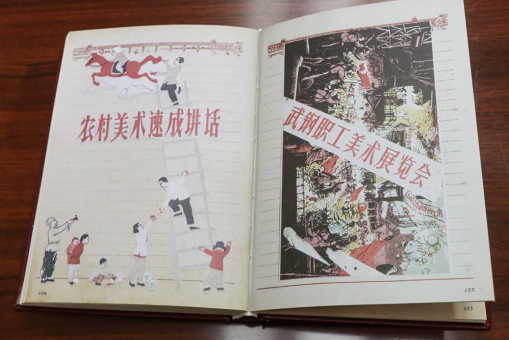 农村美术速成讲话
武钢职工美术展览会